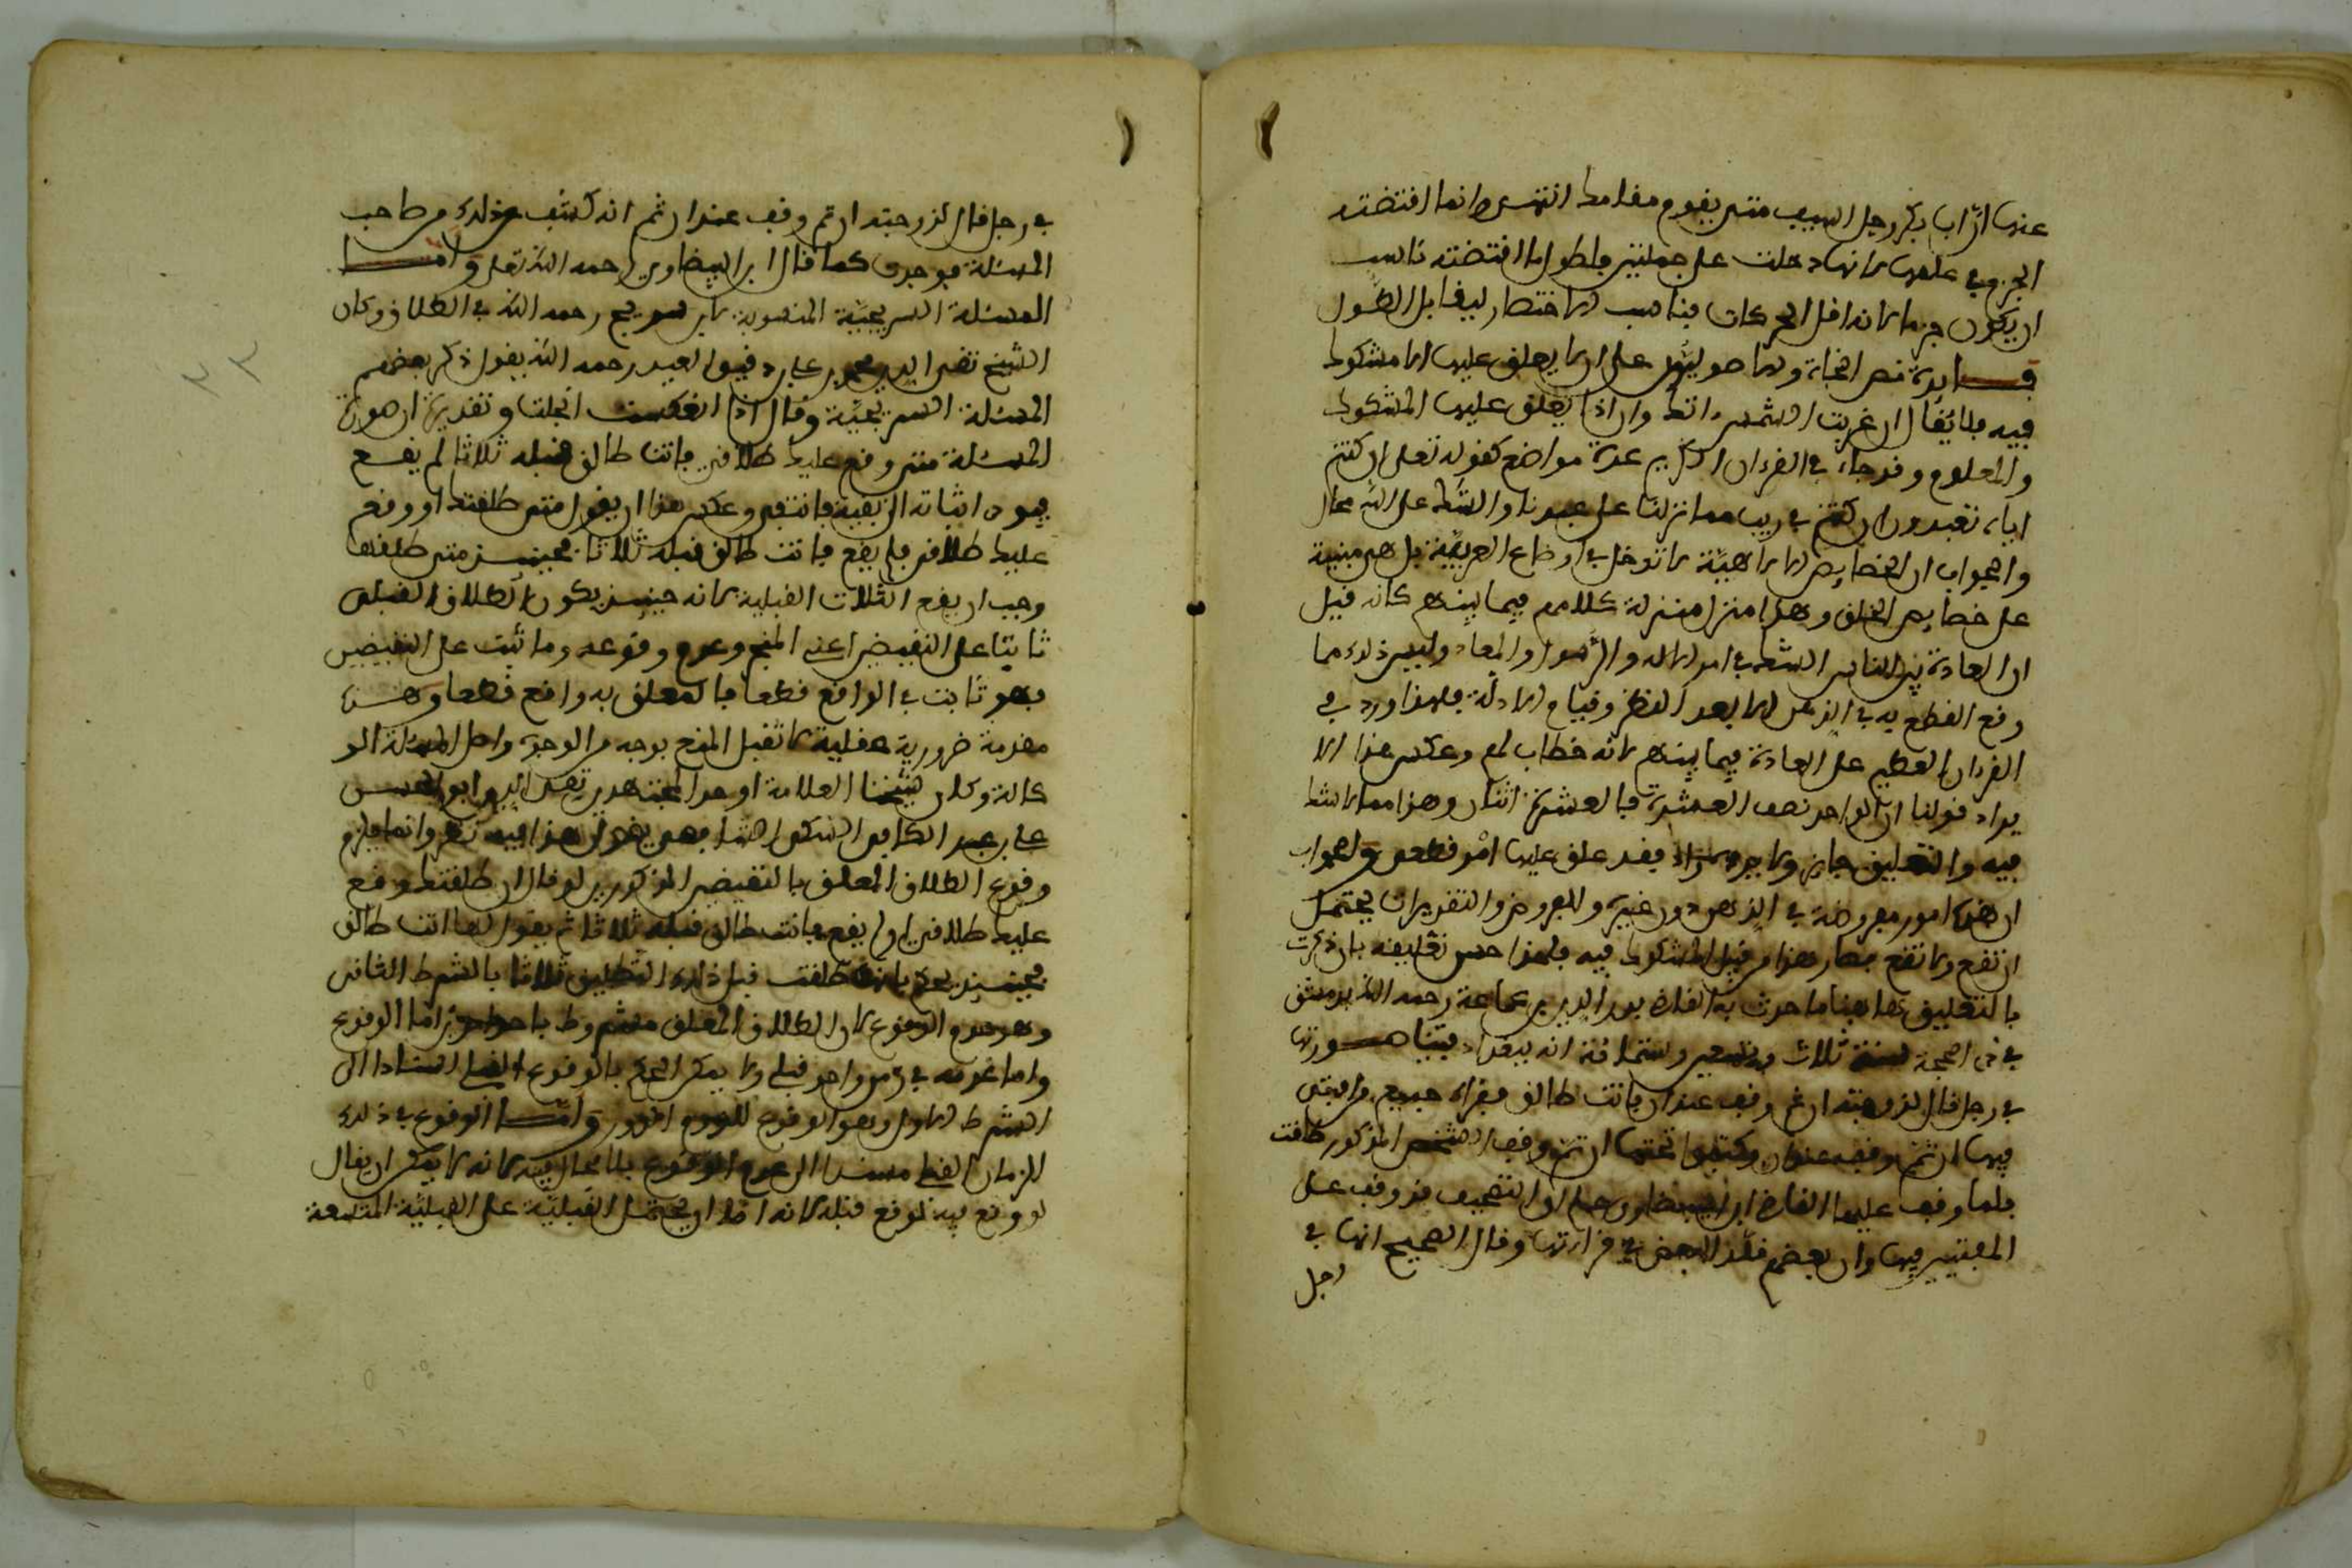 عنها اذا بكر رجل السيف متى يقوم مقامه انتهى وانما اقتضته
الجزم في عملها لانها دخلت على جملتين فلطول ما اقتضته ناسب
ان يكون جزما لانه اقل الحركات فناسب الاختصار ليقابل الطول
فائدة نص النحاة والاصوليون على ان لا يعلق عليها الا مشكوك
فيه فلا يقال ان غربت الشمس اتك وان اذا يعلق عليها المشكوك
والمعلوم وقد جاء في القرءان الكريم عدة مواضع كقوله تعلى ان كنتم
اياه تعبدون ان كنتم في ريب مما نزلنا على عبدنا والشك على الله محال
والجواب ان الخصايص الالاهية لا تدخل في اوضاع العربية بل هي مبنية
على خصايص الخلق وهذا منزل منزلة كلامهم فيما بينهم كانه قيل
ان العادة بين الناس الشك في امر الالاه والرسول والمعاد وليس ذلك مما
وقع القطع به في الذهن الا بعد النظر وقيام الادلة فلهذا ورد في
القرءان العظيم على العادة فيما بينهم لانه خطاب لهم وعكس هذا الا
يراد قولنا ان الواحد نصف العشرة فالعشرة اثنان وهذا مما لا شك
فيه والتعليق جايز ولا يجوز فقد علق عليها امر قطعي والجواب
ان هذه امور مفروضة في الذهن دون غيره والمفروض والتقديرات يحتمل
ان تقع ولا تقع فصار هذا من قبيل المشكوك فيه فلهذا حسن تعليقه بان ذكرت
بالتعليق هاهنا ما حدث به القاضي بدر الدين بن جماعة رحمه الله بدمشق
في ذي الحجة سنة ثلاث وتسعين وستمائة انه ببغداد فتيا صورتها
في رجل قال لزوجته ان ثم وقف عند ان فانت طالق فقراه جميع من افتى
فيها ان تم وقف عند ان وكتبوا تحتها ان تم وقف الشخص المذكور طلقت
فلما وقف عليها القاضي ابن البيضاوي حمله لو التصحيف فوقف على
المفتين فيها وان بعضهم قلد البعض في قراءتها وقال الصحيح انها في
رجل
في رجل قال لزوجته ان ثم وقف عند ان ثم انه كشف عن ذلك من صاحب
المسئلة فوجدت كما قال ابن البيضاوي رحمه الله تعلى واما
المسئلة السريجية المنسوبة لابن سريج رحمه الله في الطلاق وكان
الشيخ تقي الدين محمد بن علي بن دقيق العيد رحمه الله يقول ذكر بعضهم
المسئلة السريجية وقال اذا انعكست انحلت وتقديره ان صورة
المسئلة متى وقع عليك طلاقي فانت طالق قبله ثلاثا لم يقع
عليك طلاقي فلم يقع فانت طالق قبله ثلاثا فحينئذ متى طلقها
وجب ان يقع الثلاث القبلية لانه حينئذ يكون الطلاق القبلي
ثابتا على النقيضين اعني المنجز وعدم وقوعه وما ثبت على النقيضين
فهو ثابت في الواقع قطعا فالمعلق به واقع قطعا وهذه
مقدمة ضرورية عقلية لا تقبل المنع بوجه من الوجوه واصل المسئلة الو
كالة وكان شيخنا العلامة اوحد المجتهدين تقي الدين ابو الحسن
علي بن عبد الكافي السبكي يقول هذا فيه نظر وانما يلزم
وقوع الطلاق المعلق بالنقيضين المذكورين لو قال ان طلقتك وقع
عليك طلاقي او لم يقع فانت طالق قبله ثلاثا ثم يقول لها انت طالق
فحينئذ يحكم بانها طلقت قبل ذلك التطليق ثلاثا بالشرط الثاني
وهو عدم الوقوع لان الطلاق المعلق مشروط باحد امرين اما الوقوع
واما عدمه في زمن واحد قبلي ولا يمكن الحكم بالوقوع القبلي استنادا الى
الشرط الاول وهو الوقوع للزوم الدور واما الوقوع في ذلك
الزمان القبلي مستندا الى عدم الوقوع فلا محال فيه لانه لا يمكن ان يقال
لو وقع فيه لوقع قبله لانه اما ان يحمل القبلية على القبلية المتسعة